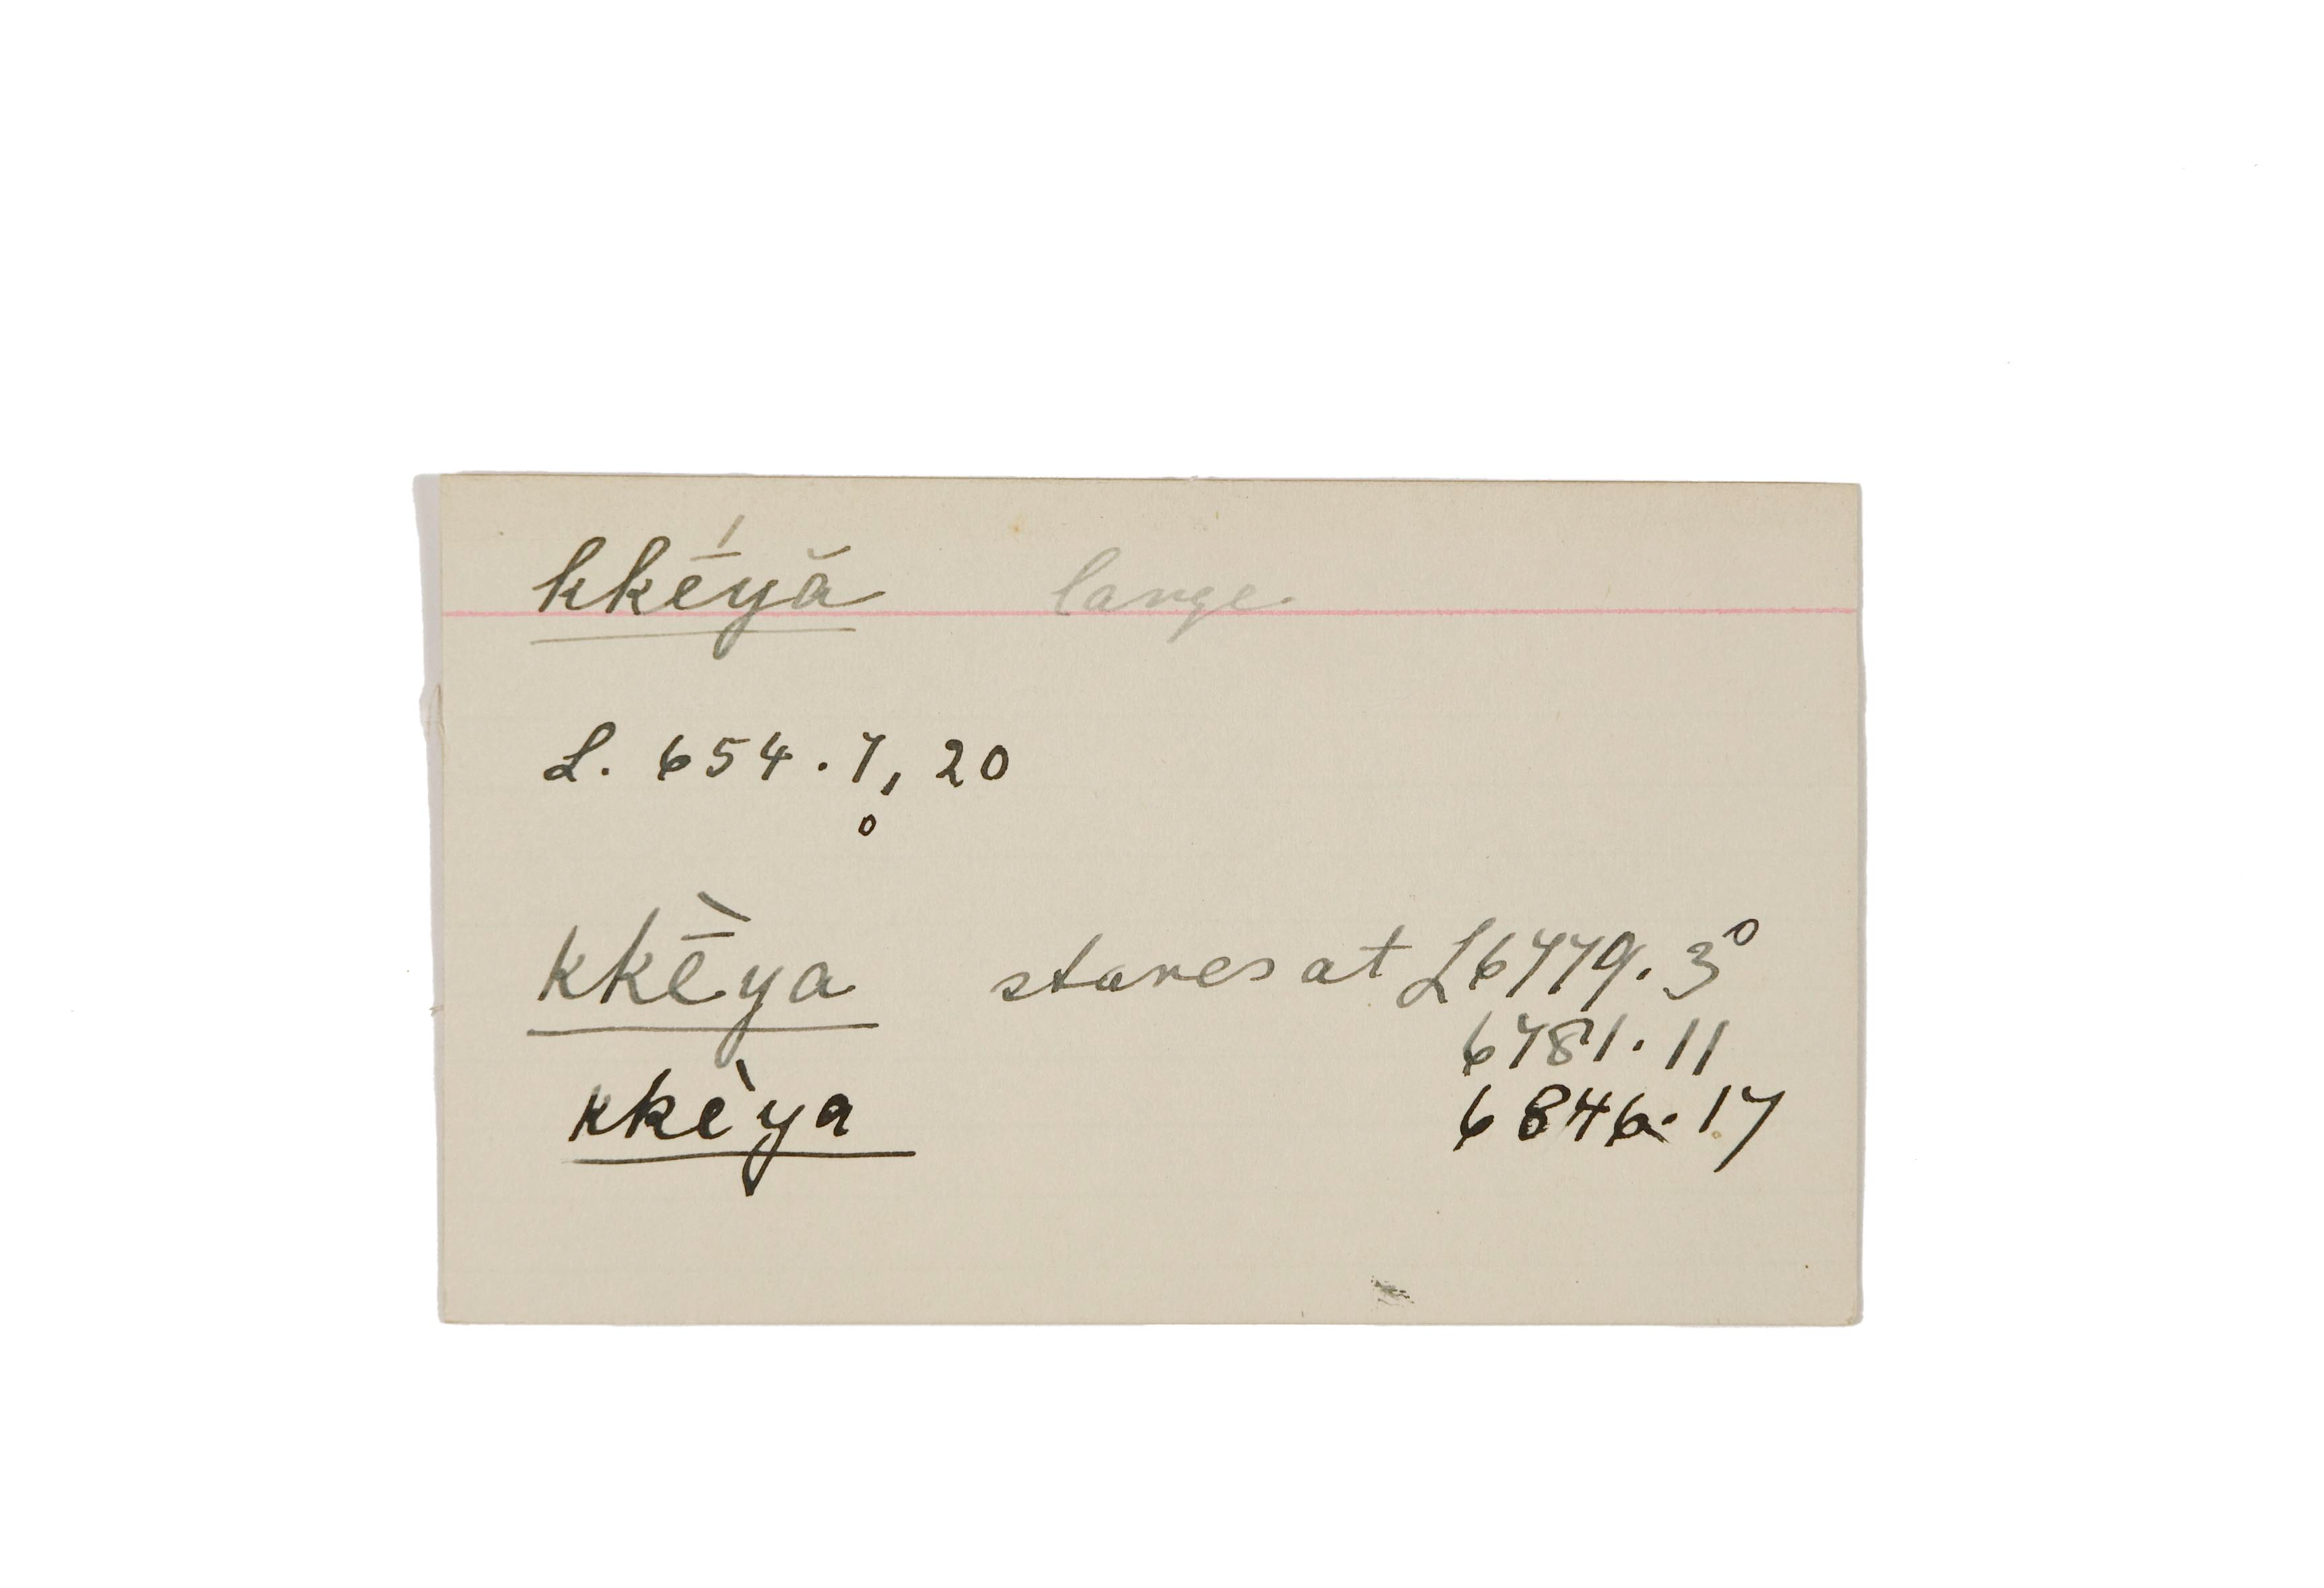 kkḗyă large.
L. 654.7, 20
o
kkḕya stares at L6779.3⁰
6781.11
kkèya 6846.17